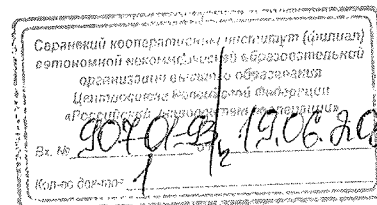 Саранский кооперативный институт (филиал)
автономной некоммерческой образовательной
организации высшего образования
Центросоюза Российской Федерации
«Российский университет кооперации»
Вх. № 19.06.20
Кол-во док-тов 1